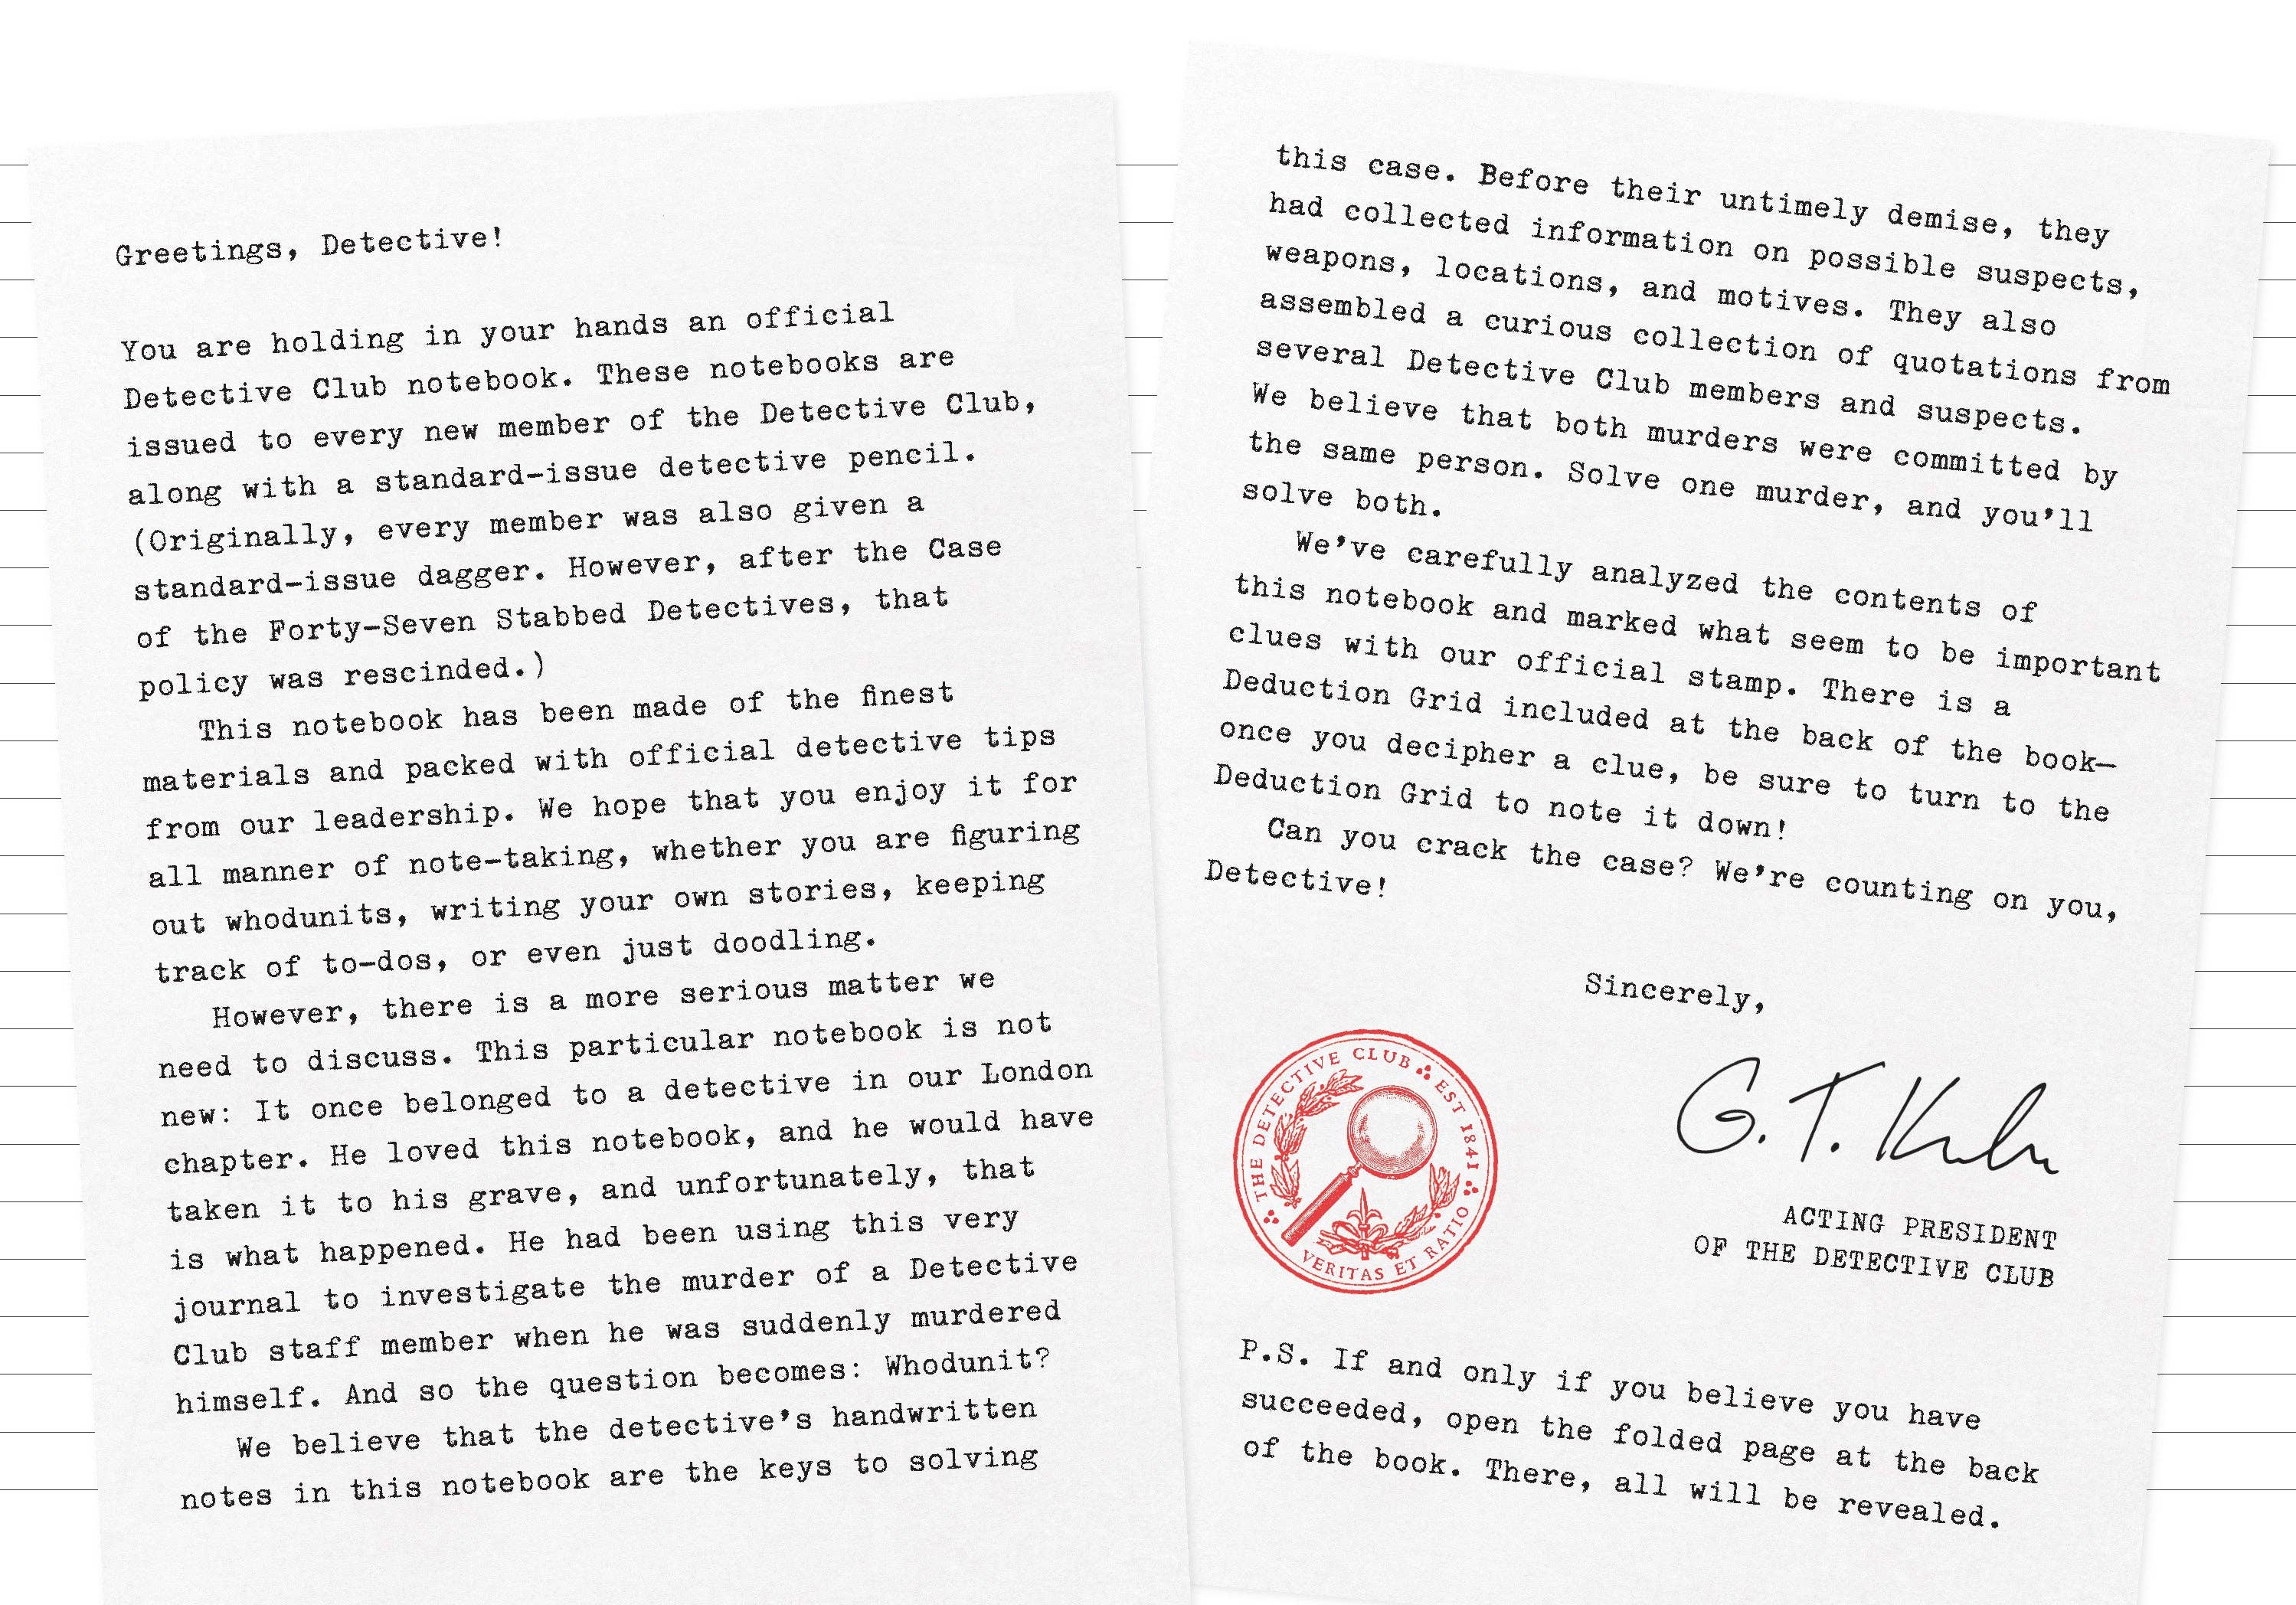 Greetings, Detective!
You are holding in your hands an official
Detective Club notebook. These notebooks are
issued to every new member of the Detective Club,
along with a standard-issue detective pencil.
(Originally, every member was also given a
standard-issue dagger. However, after the Case
of the Forty-Seven Stabbed Detectives, that
policy was rescinded.)
This notebook has been made of the finest
materials and packed with official detective tips
from our leadership. We hope that you enjoy it for
all manner of note-taking, whether you are figuring
out whodunits, writing your own stories, keeping
track of to-dos, or even just doodling.
However, there is a more serious matter we
need to discuss. This particular notebook is not
new: It once belonged to a detective in our London
chapter. He loved this notebook, and he would have
taken it to his grave, and unfortunately, that
is what happened. He had been using this very
journal to investigate the murder of a Detective
Club staff member when he was suddenly murdered
himself. And so the question becomes: Whodunit?
We believe that the detective’s handwritten
notes in this notebook are the keys to solving
this case. Before their untimely demise, they
had collected information on possible suspects,
weapons, locations, and motives. They also
assembled a curious collection of quotations from
several Detective Club members and suspects.
We believe that both murders were committed by
the same person. Solve one murder, and you’ll
solve both.
We’ve carefully analyzed the contents of
this notebook and marked what seem to be important
clues with our official stamp. There is a
Deduction Grid included at the back of the book—
once you decipher a clue, be sure to turn to the
Deduction Grid to note it down!
Can you crack the case? We’re counting on you,
Detective!
Sincerely,
THE DETECTIVE CLUB EST 1841
VERITAS ET RATIO
G. T.
ACTING PRESIDENT
OF THE DETECTIVE CLUB
P.S. If and only if you believe you have
succeeded, open the folded page at the back
of the book. There, all will be revealed.